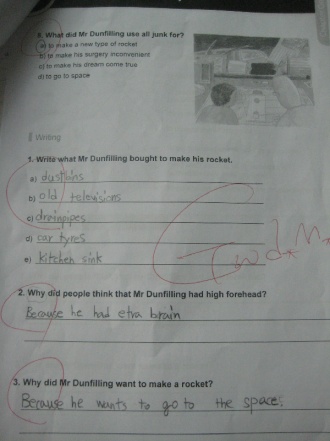 6. What did Mr Dunfilling use all junk for?
a) to make a new type of rocket
b) to make his surgery inconvenient
c) to make his dream come true
d) to go to space
Writing
1. Write what Mr Dunfilling bought to make his rocket.
a) dustbins
b) old televisions
c) drainpipes
d) car tyres
e) kitchen sink
2. Why did people think that Mr Dunfilling had high forehead?
Because he had etra brain
3. Why did Mr Dunfilling want to make a rocket?
Because he wants to go to the space.